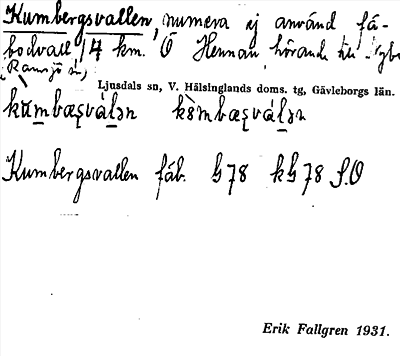 Kumbergsvallen, numera ej använd fä-
bodvall, 4 km. Ö Hennan, hörande till
(Ramsjö sn,)
Ljusdals sn, V. Hälsinglands doms. tg, Gävleborgs län.
Kumbergsvallen fäb. G78 kG78 S.O
Erik Fallgren 1931.